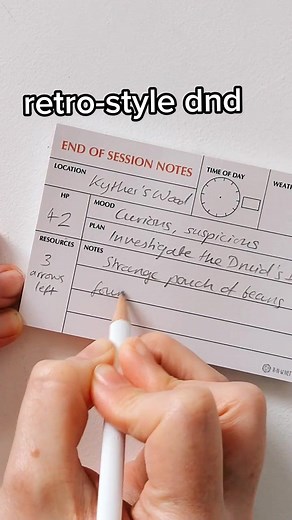 retro-style dnd
END OF SESSION NOTES
LOCATION
Kyther's Wood
TIME OF DAY
HP
42
MOOD
Curious, suspicious
PLAN
Investigate the Druid's
RESOURCES
3
arrows
left
NOTES
Strange pouch of beans